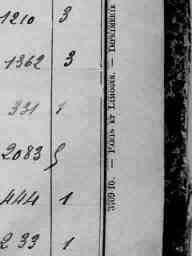 1210 3
1362 3
331 1
2083 5
444 1
233 1
3509-10. — PARIS ET LIMOGES. — IMPRIMERIE